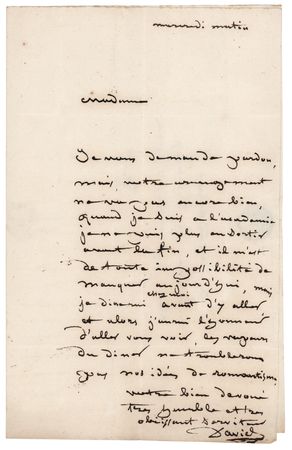 mercredi matin
Madame
Je vous demande pardon,
mais, votre arrangement
ne va pas encore bien,
quand je suis a l'academie
je ne puis plus en sortir
avant la fin, et il m'est
de toute impossibilité de
manquer aujourd'hui, mais
je dinerai chez moi avant d'y aller
et alors j'aurai l'honneur
d'aller vous voir, les vapeurs
du diner ne troubleront
pas nos idées de romantisme
votre bien devoué
tres humble et tres
obeissant serviteur
David